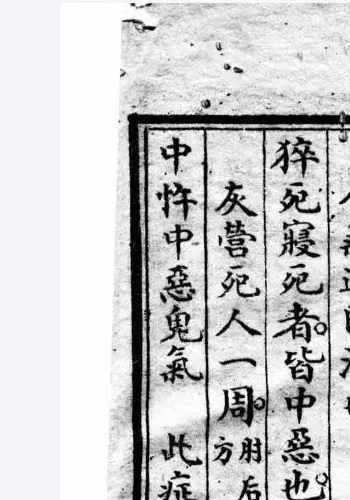 猝死寢死者皆中惡也
灰營死人一周肘后
方
中忤中惡鬼氣 此症